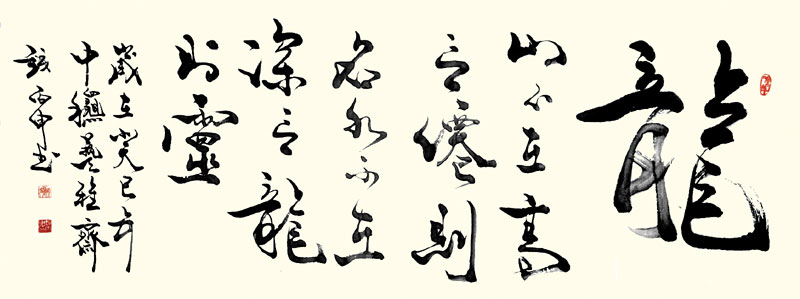 龍
山不在高
有僊則
名水不在
深有龍
則靈
歲在癸巳年
中穐雅齋
書